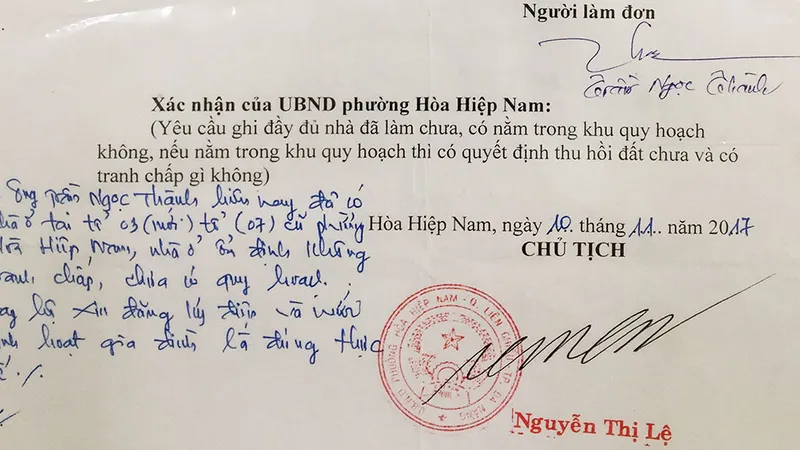 Người làm đơn
Trần Ngọc Thành
Xác nhận của UBND phường Hòa Hiệp Nam:
(Yêu cầu ghi đầy đủ nhà đã làm chưa, có nằm trong khu quy hoạch
không, nếu nằm trong khu quy hoạch thì có quyết định thu hồi đất chưa và có
tranh chấp gì không)
Ông Trần Ngọc Thành hiện nay đã có
nhà ở tại tổ 03 (mới) tổ (07) cũ phường
Hòa Hiệp Nam, nhà ở ổn định không
tranh chấp, chưa có quy hoạch.
đăng ký điện và nước
sinh hoạt gia đình là đúng thực
tế./.
Hòa Hiệp Nam, ngày 10 tháng 11.. năm 2017
CHỦ TỊCH
U.B.N.D PHƯỜNG HÒA HIỆP NAM - Q. LIÊN CHIỂU T.P. ĐÀ NẴNG
Nguyễn Thị Lệ